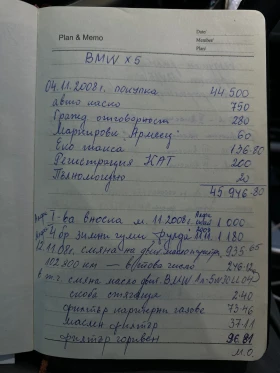 Plan & Memo
Date:
Member:
Place:
BMW x5
04.11.2008г. покупка 44 500
авто масло 750
Гражд. отговорност 280
Маркировки Армеец: 60
Еко такса 136.80
Регистрация КАТ 200
Пълномощно 20
45 946.80
I-ва вноска м. 11 2008г. 1 000
4 бр. зимни гуми 11.11. 1 180
12.11.08г. смяна на 935.05
102 400 км — в/това число
в т.ч. смяна масло двиг. BMW
скоба стягаща 2.40
филтър картерни газове 73.46
маслен филтър 37.11
филтър горивен 96.81
м.о.